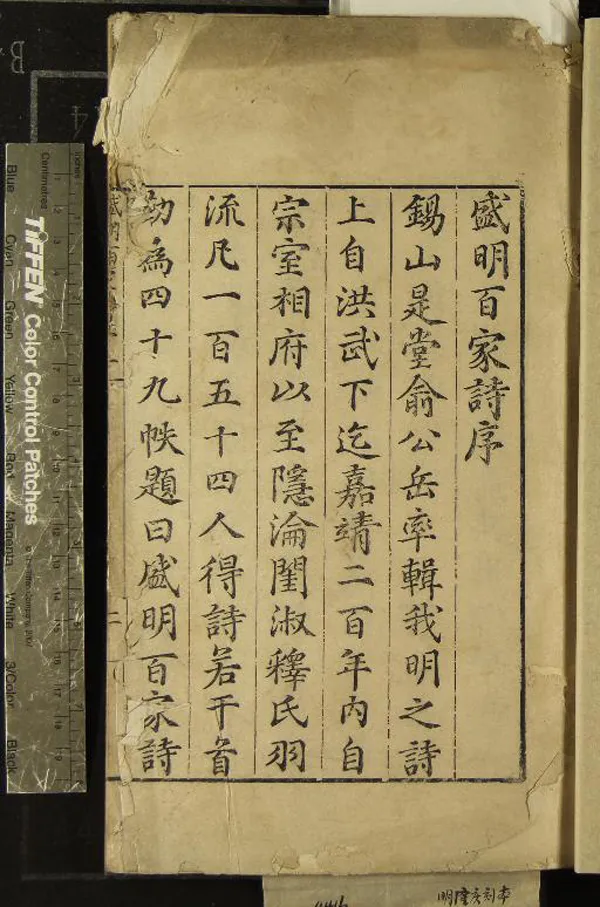 盛明百家詩序
錫山是堂俞公岳率輯我明之詩
上自洪武下迄嘉靖二百年內自
宗室相府以至隱淪閨淑釋氏羽
流凡一百五十四人得詩若干首
勒為四十九帙題曰盛明百家詩
TIFFEN Color Control Patches
Centimetres
Inches
Blue
Cyan
Green
Yellow
Red
Magenta
White
3/Color
Black
B